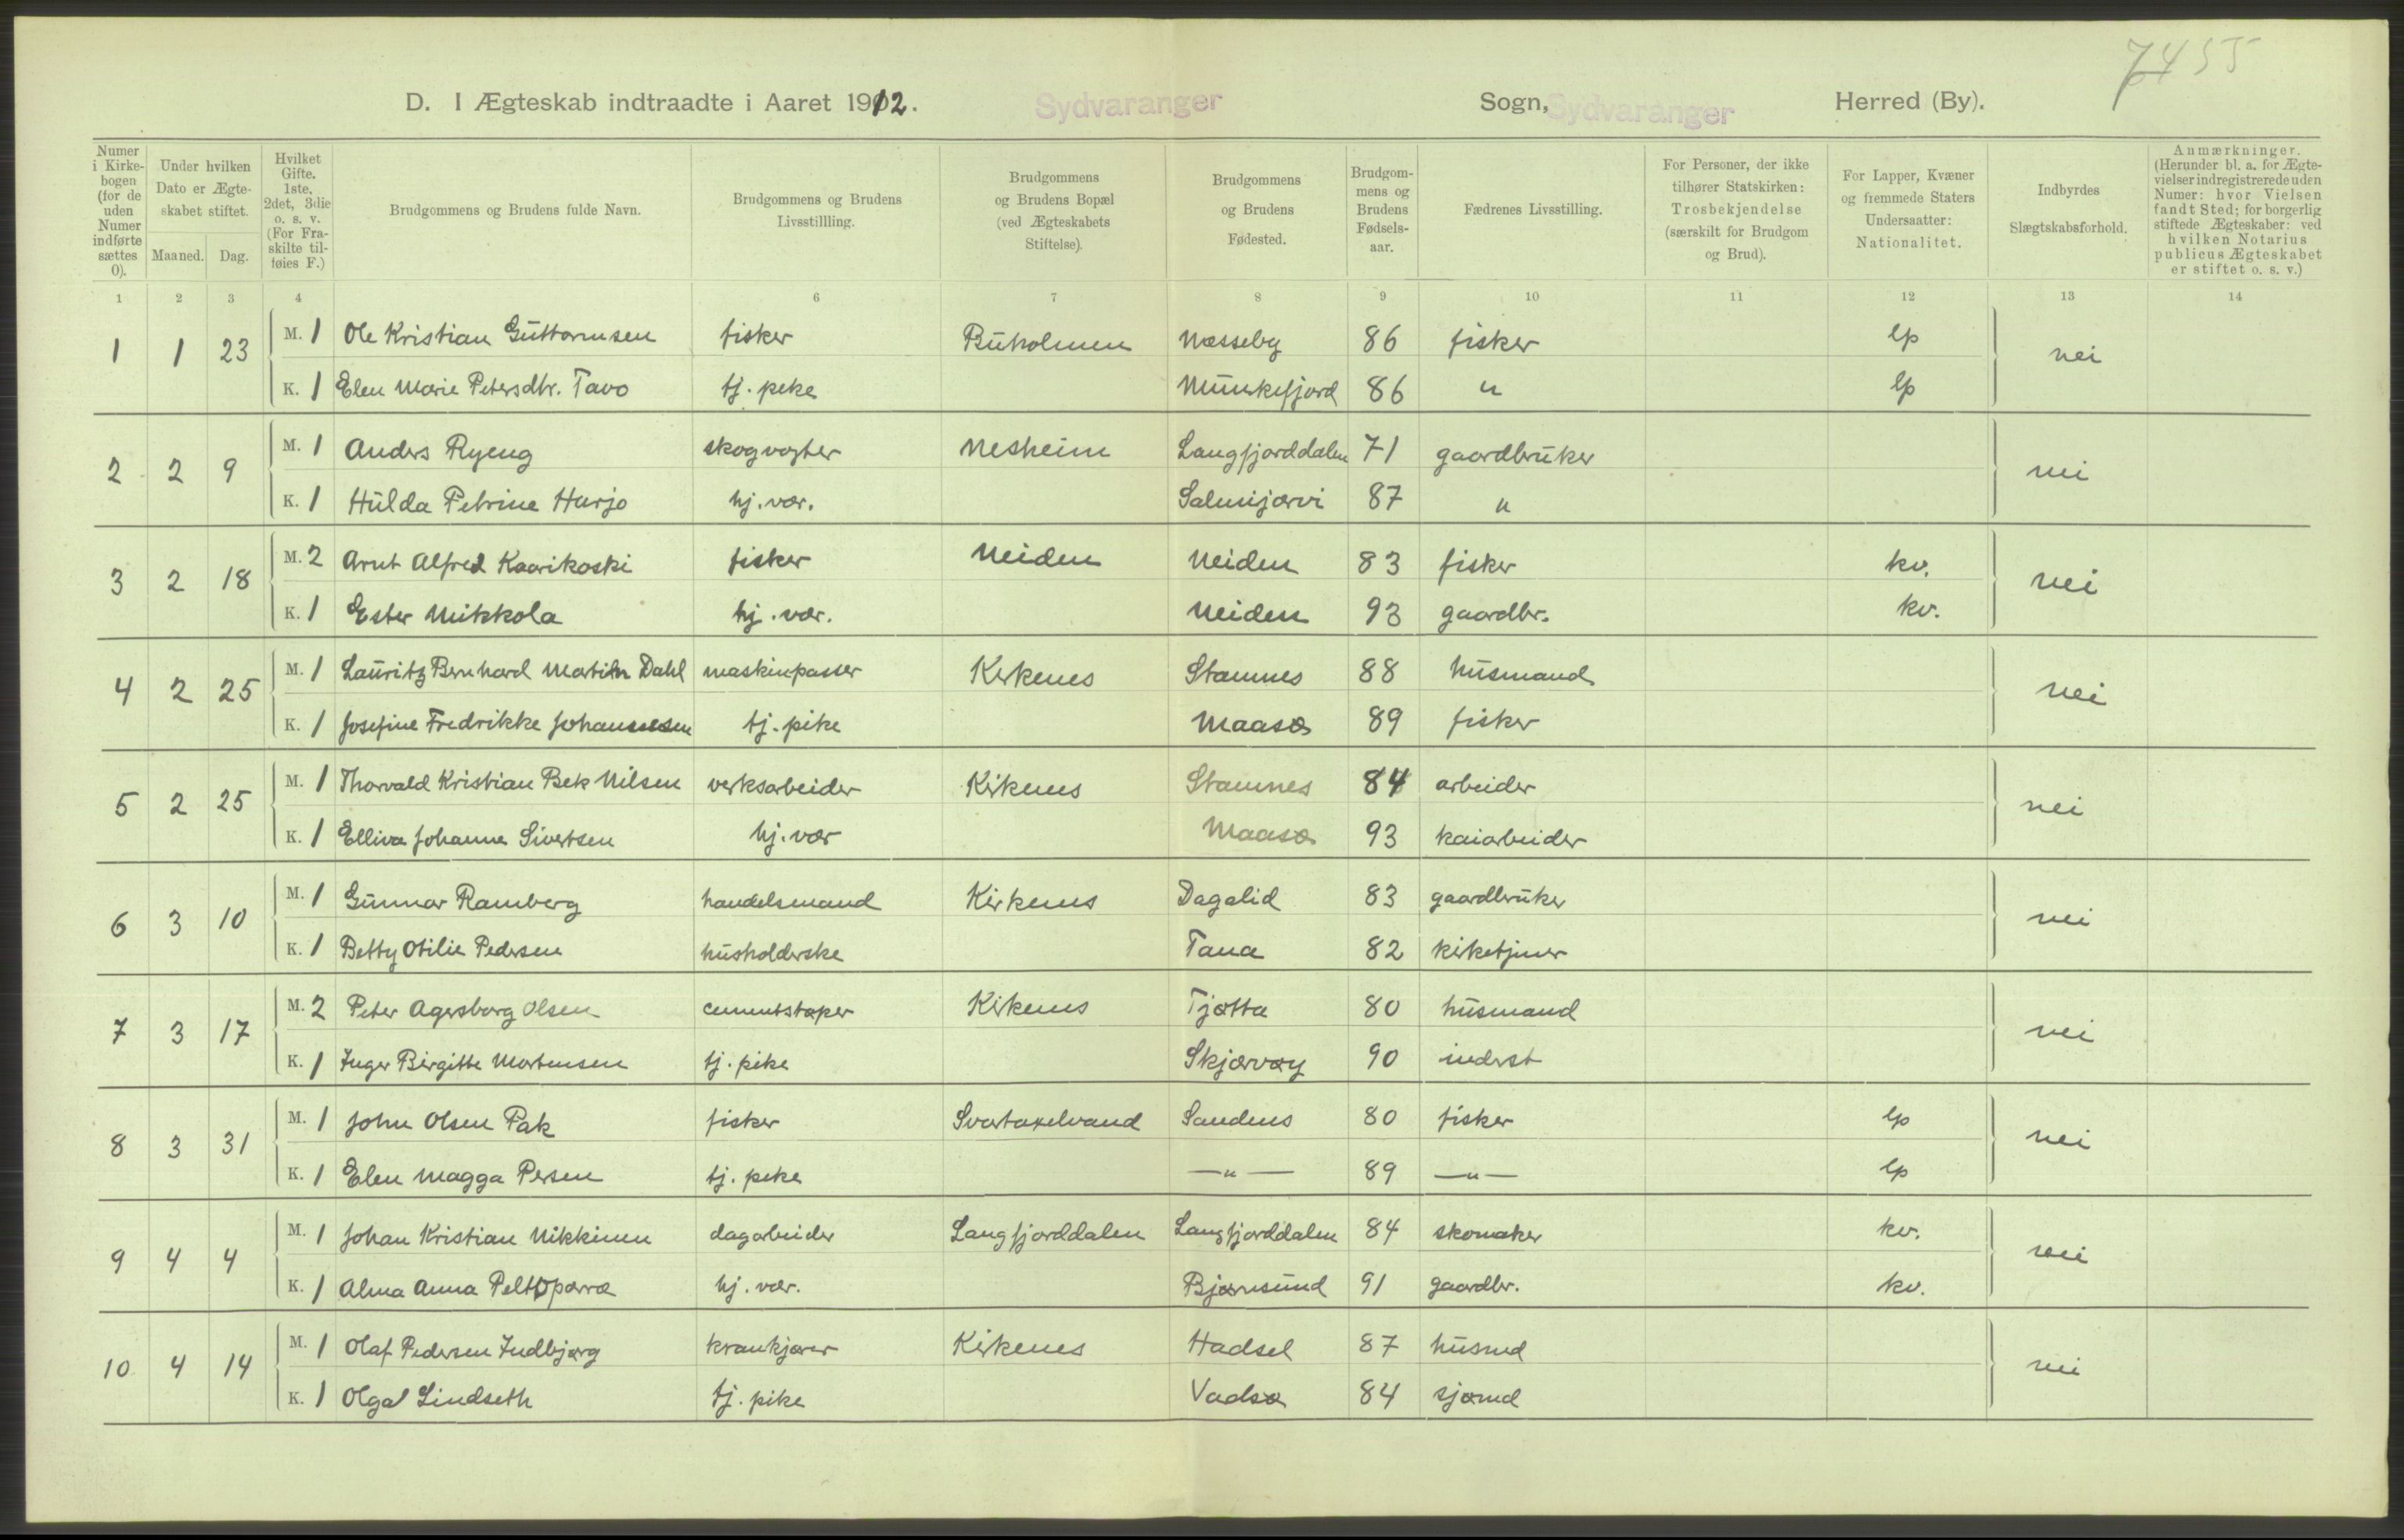 7455
D. I Ægteskab indtraadte i Aaret 1912. Sydvaranger Sogn, Sydvaranger Herred (By).
Numer i Kirkebogen (for de uden Numer indførte sættes 0). Under hvilken Dato er Ægteskabet stiftet. Maaned. Dag. Hvilket Gifte. 1ste, 2det, 3die o. s. v. (For Fraskilte tilføies F.) Brudgommens og Brudens fulde Navn. Brudgommens og Brudens Livsstillling. Brudgommens og Brudens Bopæl (ved Ægteskabets Stiftelse). Brudgommens og Brudens Fødested. Brudgommens og Brudens Fødselsaar. Fædrenes Livsstilling. For Personer, der ikke tilhører Statskirken: Trosbekjendelse (særskilt for Brudgom og Brud). For Lapper, Kvæner og fremmede Staters Undersaatter: Nationalitet. Indbyrdes Slægtskabsforhold. Anmærkninger. (Herunder bl. a. for Ægtevielser indregistrerede uden Numer: hvor Vielsen fandt Sted; for borgerlig stiftede Ægteskaber: ved hvilken Notarius publicus Ægteskabet er stiftet o. s. v.)
1 2 3 4 6 7 8 9 10 11 12 13 14
1 1 23 M. 1 Ole Kristian Guttormsen fisker Buholmen Næsseby 86 fisker lp nei
K. 1 Elen Marie Petersdtr. Tavo tj. peke Munkefjord 86 " lp
2 2 9 M. 1 Anders Ryeng skogvogter Nesheim Langfjorddalen 71 gaardbruker nei
K. 1 Hulda Petrine Harjo hj. vær. Salmijærvi 87 "
3 2 18 M. 2 Arnt Alfred Kaarikoski fisker Neiden Neiden 83 fisker kv. nei
K. 1 Ester Mikkola hj. vær. Neiden 93 gaardbr. kv.
4 2 25 M. 1 Lauritz Bernhard Martin Dahl maskinpasser Kirkenes Stamnes 88 husmand nei
K. 1 Josefine Fredrikke Johannessen tj. pike Maasø 89 fisker
5 2 25 M. 1 Thorvald Kristian Bek Nilsen verksarbeider Kirkenes Stamnes 84 arbeider nei
K. 1 Elliva Johanne Sivertsen hj. vær Maasø 93 kaiarbeider
6 3 10 M. 1 Gunnar Ramberg handelsmand Kirkenes Dagalid 83 gaardbruker nei
K. 1 Betty Otilie Pedersen husholderske Tana 82 kirketjener
7 3 17 M. 2 Peter Agersborg Olsen cementstøper Kirkenes Tjøtta 80 husmand nei
K. 1 Inger Birgitte Mortensen tj. pike Skjærvøy 90 inderst
8 3 31 M. 1 John Olsen Pak fisker Svartaxelvand Sandnes 80 fisker lp nei
K. 1 Elen Magga Persen tj. peke —"— 89 —"— lp
9 4 4 M. 1 Johan Kristian Nikkinen dagarbeider Langfjorddalen Langfjorddalen 84 skomaker kv. nei
K. 1 Alma Anna Peltoparra hj. vær. Bjørnsund 91 gaardbr. kv.
10 4 14 M. 1 Olaf Pedersen Indbjørg krankjører Kirkenes Hadsel 87 husmd nei
K. 1 Olga Lindseth tj. pike Vadsø 84 sjømd